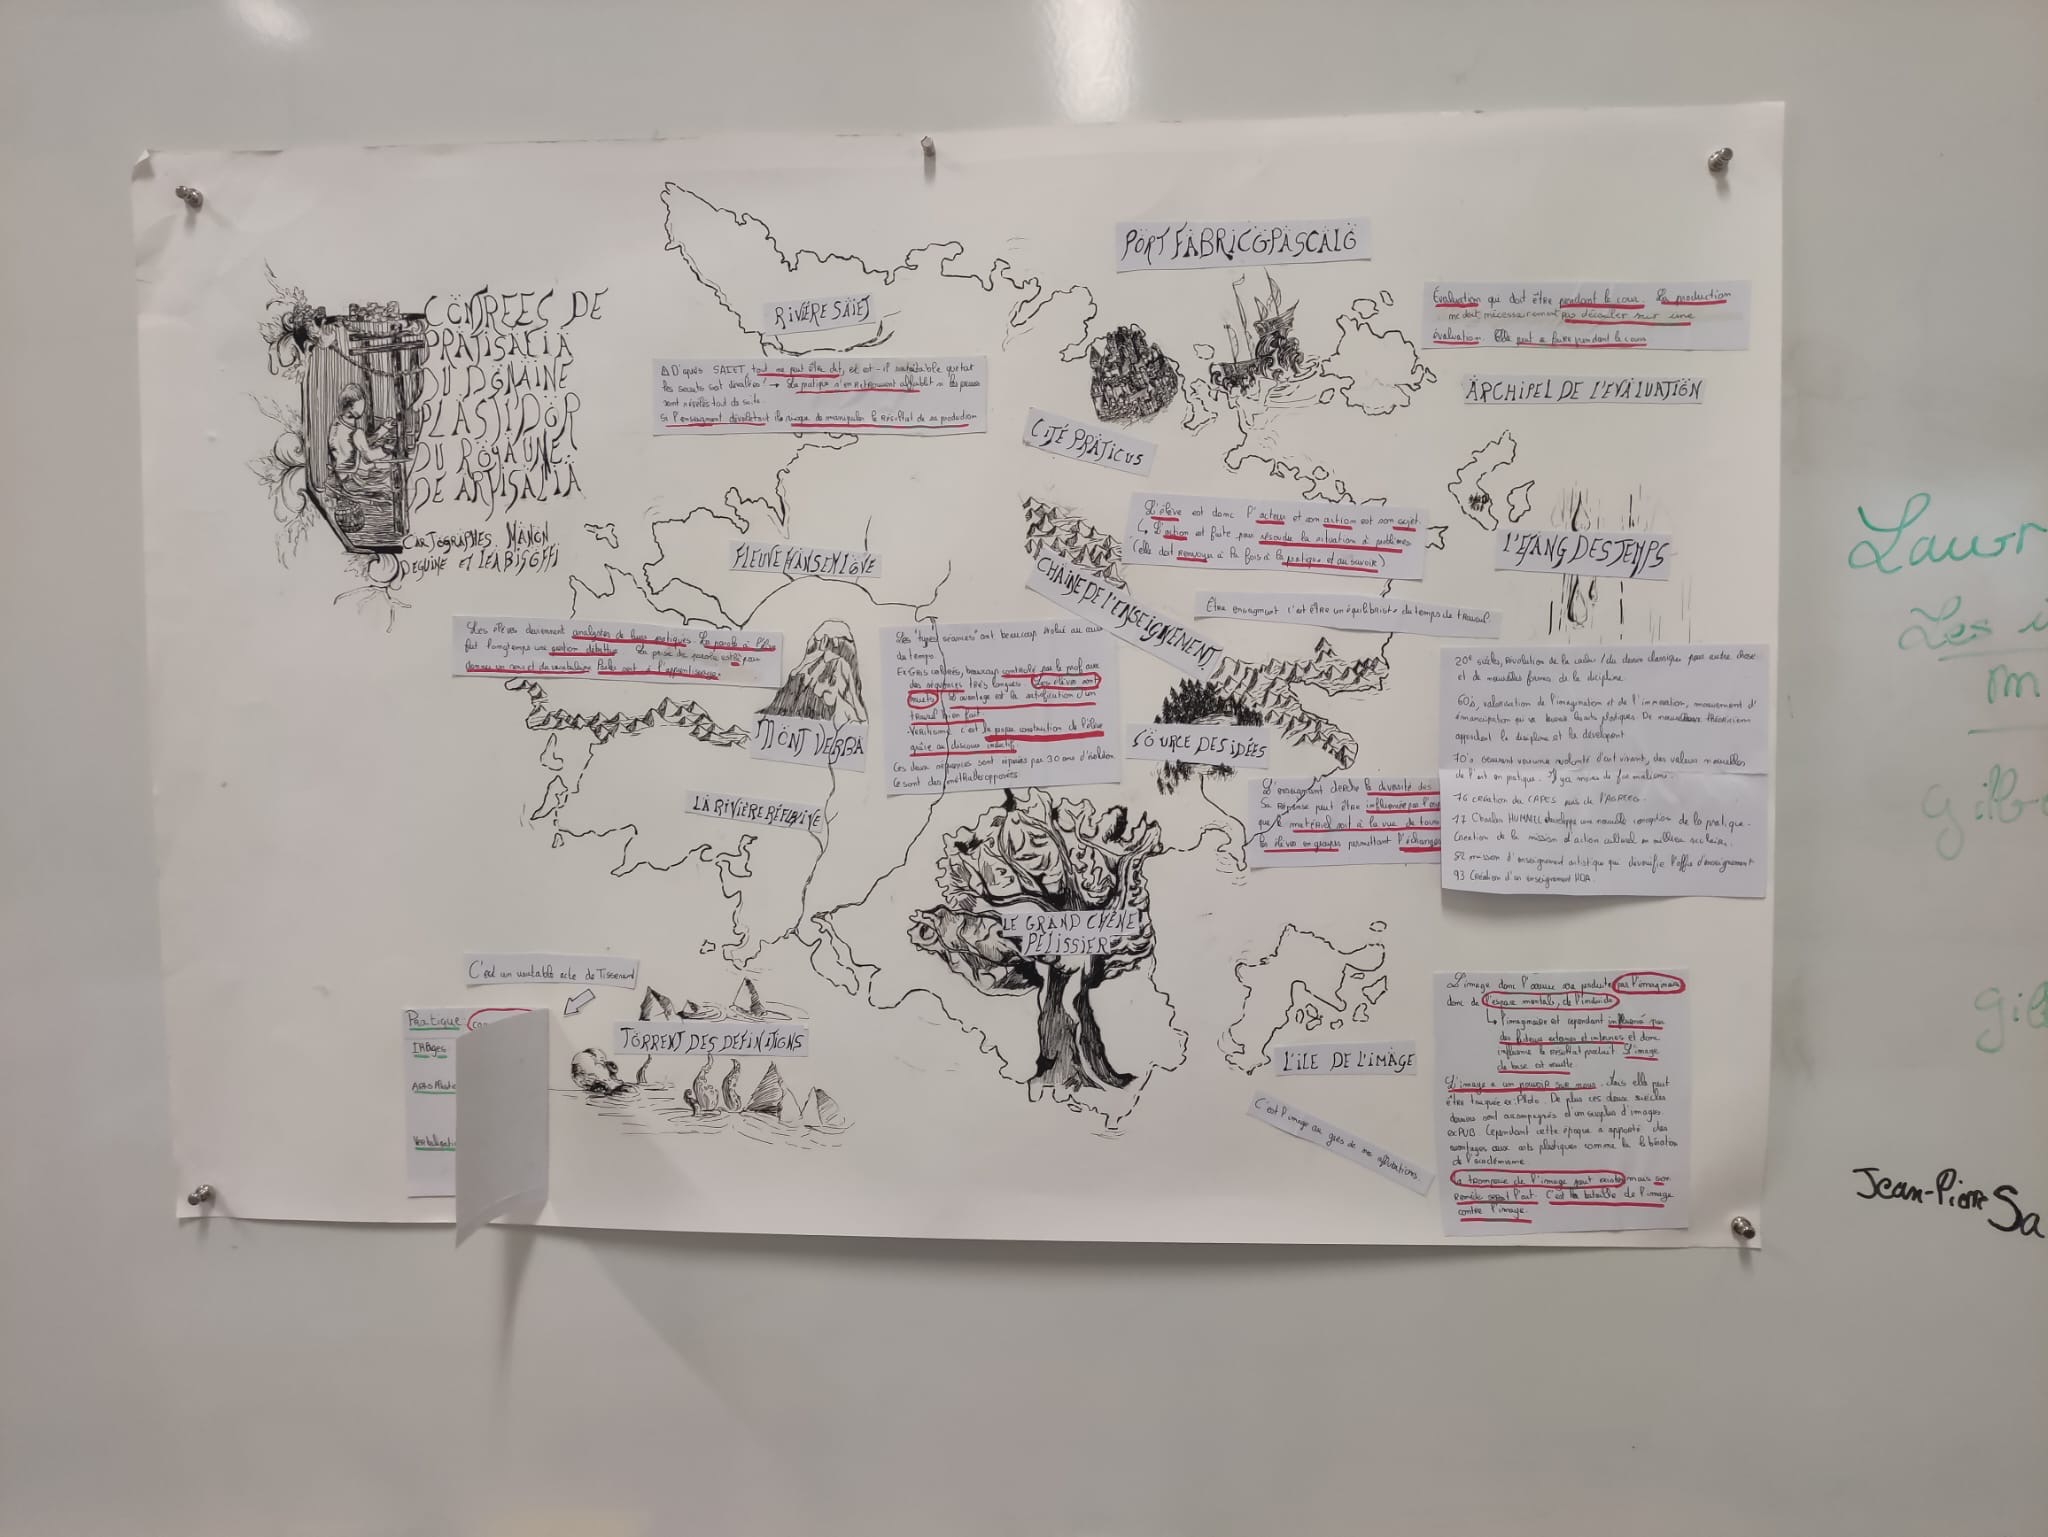 CONTREES DE
PRATISALIA
DU DOMAINE
PLASTIDOR
DU ROYAUME
DE ARTISALIA
CARTOGRAPHES. MANON
DEGUINE ET LEA BISOFFI
RIVIÈRE SAIET
D'après SAIET, tout ne peut être dit, et est-il souhaitable que tous
les secrets soit dévoilés? → La pratique s'en retrouvent affaiblit si les
sont révélés tout de suite.
Si l'enseignant dévoile tout il risque de manipuler le résultat de sa production
PORT FABRICOPASCALO
Évaluation qui doit être pendant le cour. La production
ne doit nécessairement pas découler sur une
évaluation. Elle peut se faire pendant le cours
ARCHIPEL DE L'EVALUATION
CITÉ PRATICUS
L'élève est donc l'acteur et son action est son sujet.
↳ L'action est faite pour résoudre la situation à problèmes
(elle doit renvoyer à la fois à la pratique et au savoir)
L'ETANG DES TEMPS
FLEUVE HANSENLOVE
CHAINE DE L'ENSEIGNEMENT
Être enseignant c'est être un équilibriste du temps de travail.
Les élèves deviennent analystes de leurs pratiques. La parole à l'élève
fut longtemps une question débattue. La prise de parole est là pour
donner un sens et du vocabulaire. Parler sert à l'apprentissage.
MONT VERBA
Les "types séances" ont beaucoup évolué au cours
du temps.
Ex Gris colorés, beaucoup contrôlé par le prof avec
des séquences très longues. Les élèves sont
muets. L'avantage est la satisfaction d'un
travail bien fait.
.Veritisme c'est la propre construction de l'élève
grâce au discours inductif.
Ces deux séquences sont séparées par 30 ans d'évolution
Ce sont des méthodes opposées
SOURCE DES IDÉES
L'enseignant cherche la diversité des
Sa réponse peut être influencée par l'
que le matériel soit à la vue de tous
les élèves en groupes permettant l'échange
20e siècle, révolution de la couleur / du dessin classique pour autre chose
et de nouvelles formes de la discipline.
60's, valorisation de l'imagination et de l'innovation, mouvement d'
émancipation qui va toucher les arts plastiques. De nouveaux théoriciens
apportent la discipline et la développent
70's courant vers une volonté d'art vivant, des valeurs nouvelles
de l'art en pratique. Il y a moins de formalisme.
76 création du CAPES puis de l'AGREG.
77 Charles HUMMEL développe une nouvelle conception de la pratique.
Création de la mission d'action culturel en milieu scolaire.
82 mission d'enseignement artistique qui diversifie l'offre d'enseignement
93 Création d'un enseignement HDA.
LA RIVIÈRE RÉFLEXIVE
LE GRAND CHÊNE
PELISSIER
C'est un véritable acte de Tisserand
Pratique
Images
Arts Plast
Verbalisati
TORRENT DES DEFINITIONS
L'ILE DE L'IMAGE
C'est l'image au grès de nos
L'image donc l'œuvre sera produite par l'imaginaire
donc de l'espace mentale, de l'individu
↳ l'imaginaire est cependant influencé par
des facteurs externes et internes et donc
influence le résultat produit. Si l'image
de base est
L'image a un pouvoir sur nous. Mais elle peut
être truquée ex: Photo. De plus ces deux siècles
derniers sont accompagnés d'un surplus d'images.
ex PUB. Cependant cette époque a apporté des
avantages aux arts plastiques comme la libération
de l'académisme.
La tromperie de l'image peut exister mais son
remède serait l'art. C'est la bataille de l'image
contre l'image.
Laur
Les i
m
Gilbe
Gil
Jean-Pierre Sa